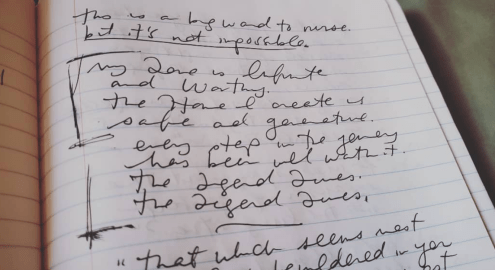 this is a big word to nurse.
but it's not impossible.
my Love is Infinite
and Worthy.
the Home I create is
safe and generative.
every step in the journey
has been well worth it.
The Legend Lives.
The Legend Lives.
"that which seems most
bewildered in you